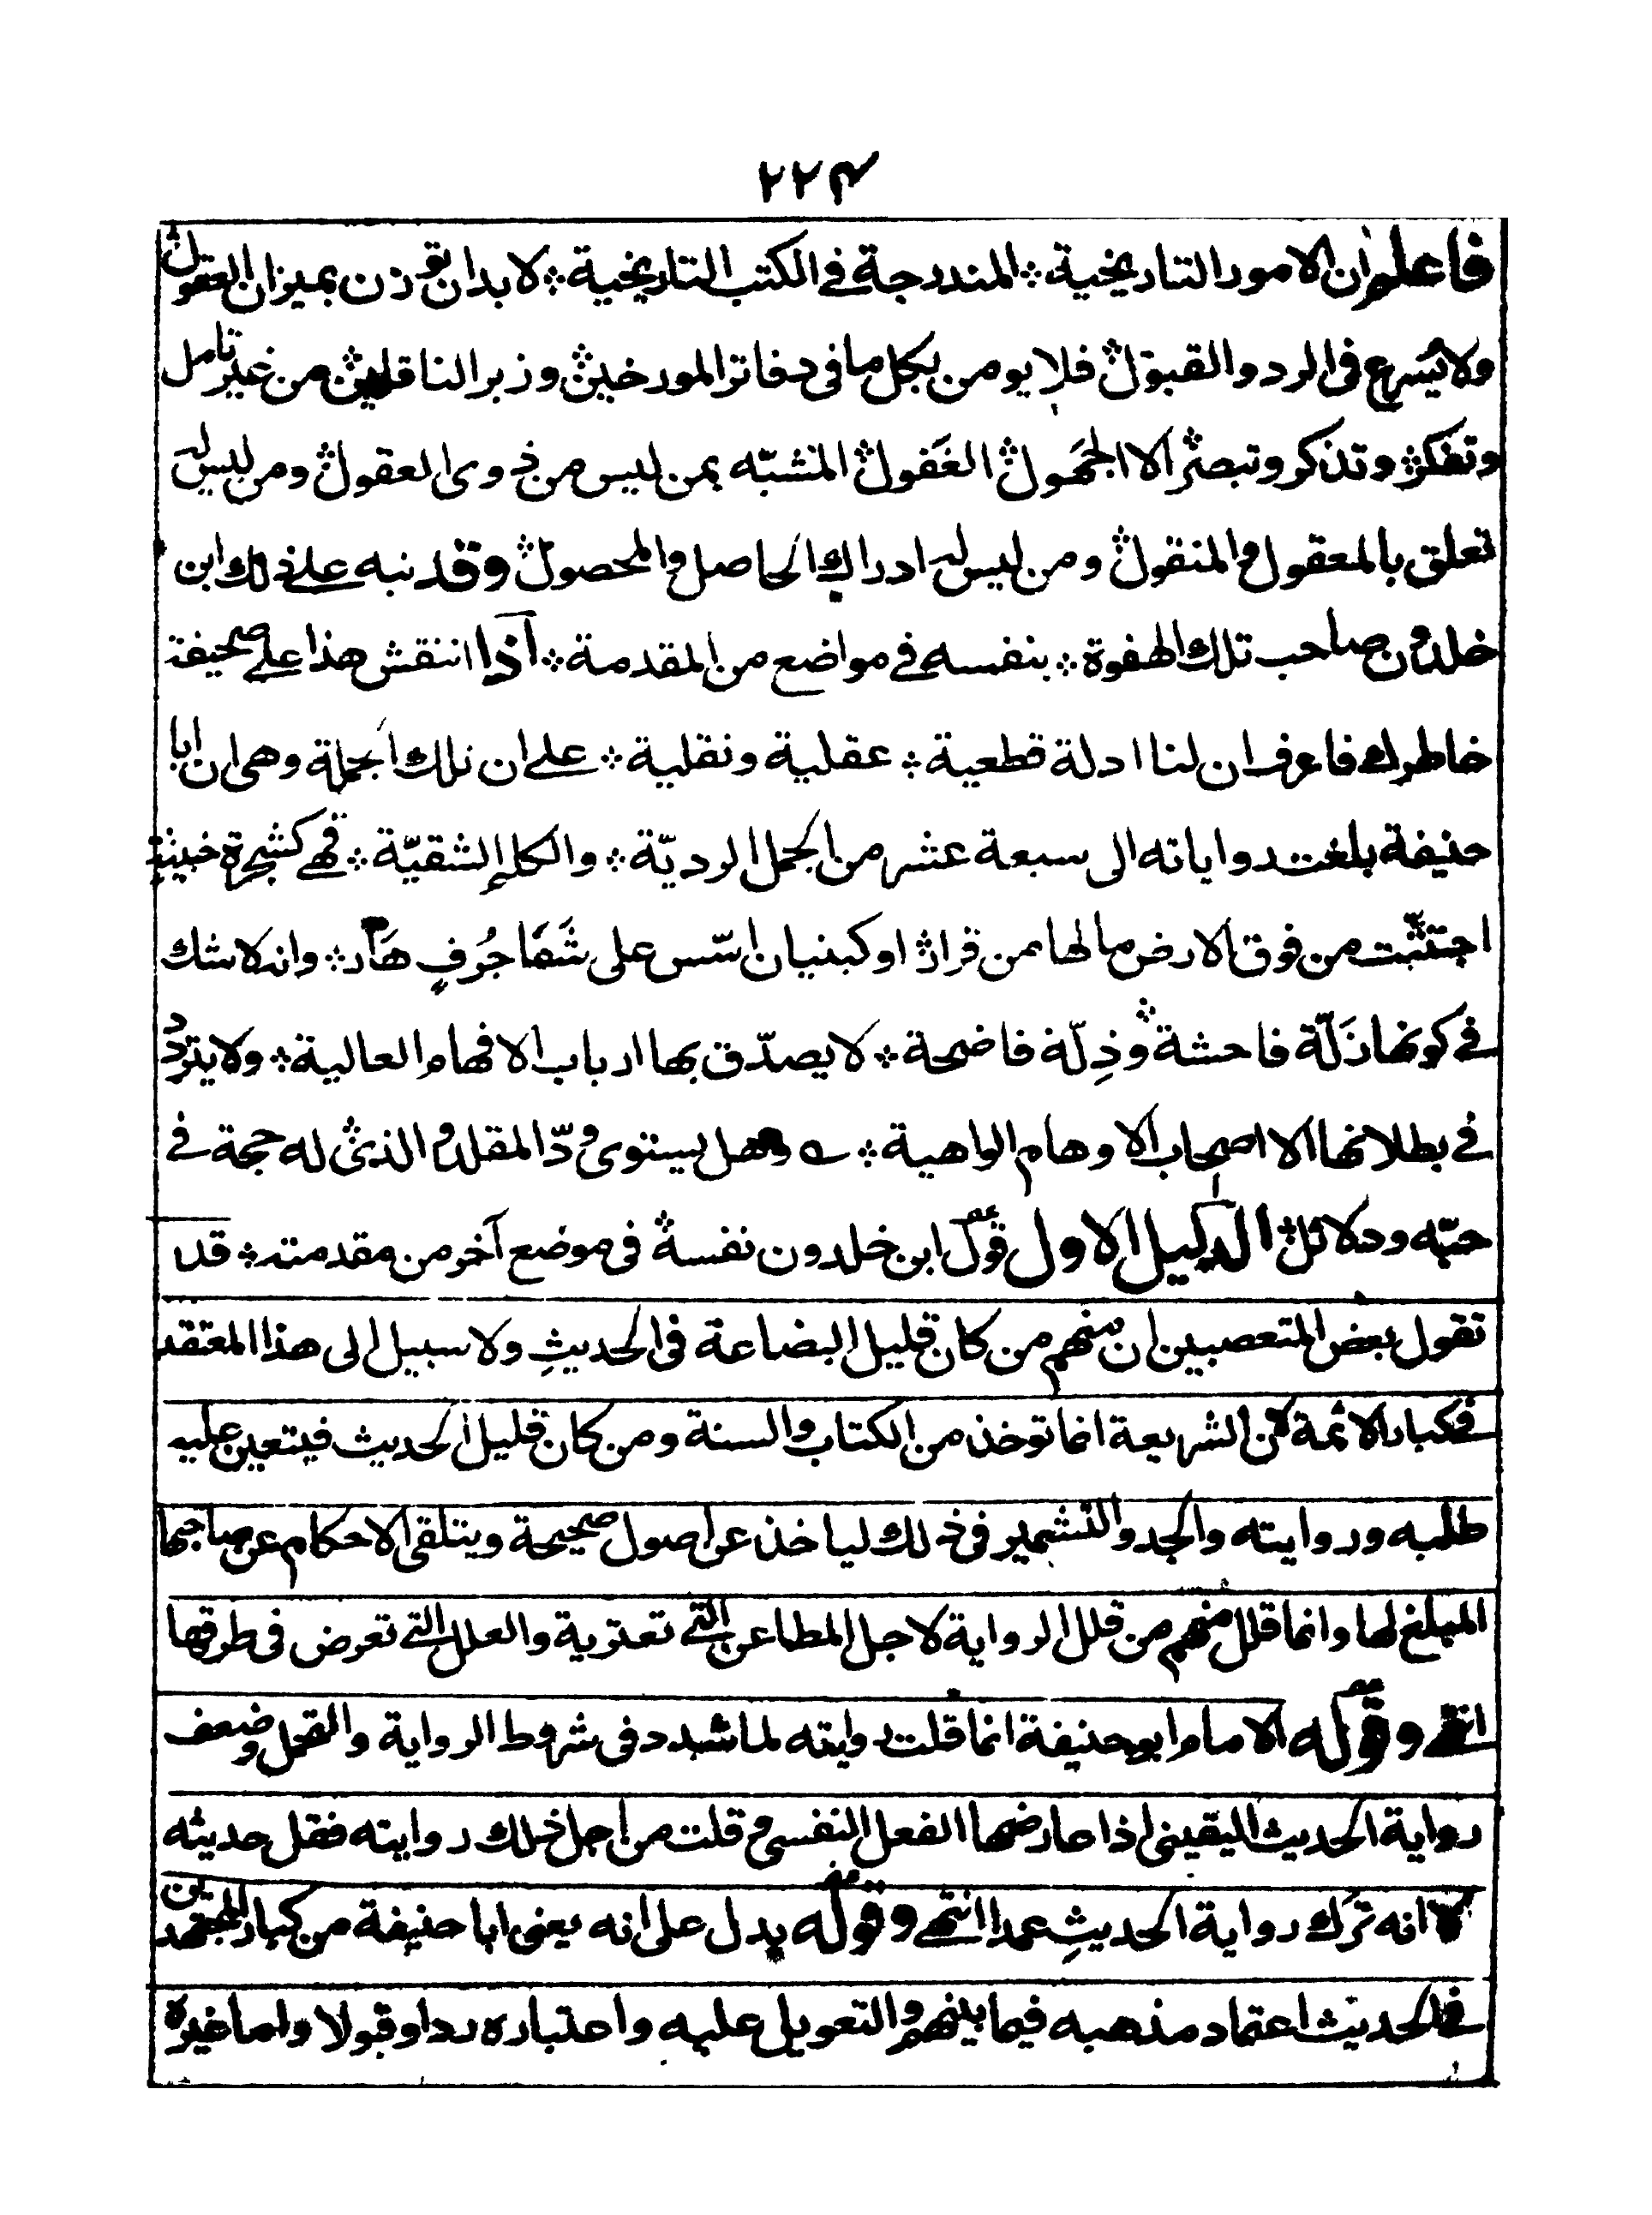 ۲۲۴
فاعلم ان الامور التاريخية ؞ المندرجة في الكتب التاريخية ؞ لا بد ان توزن بميزان العقول ؞
ولا يُسرع في الرد والقبول ؞ فلا يومن بكل ما في دفاتر المورخين ؞ وزبر الناقلين ؞ من غير تامل
وتفكر ؞ وتذكر وتبصر ؞ الا الجَهول ؞ الغَفول ؞ المتشبّه بمن ليس من ذوى العقول ؞ ومن ليس له
تعلق بالمعقول والمنقول ؞ ومن ليس له ادراك الحاصل والمحصول ؞ وقد نبه على ذلك ابن
خلدون صاحب تلك الهفوة ؞ بنفسه في مواضع من المقدمة ؞ اذا انتقش هذا على صحيفة
خاطرك فاعرف ان لنا ادلة قطعية ؞ عقلية ونقلية ؞ على ان تلك الجملة وهى ان ابا
حنيفة بلغت رواياته الى سبعة عشر من الجمل الرديّة ؞ والكلم الشقيّة ؞ فهي كشجرة خبيثة
اجتثّت من فوق الارض ما لها من قرار ؞ او كبنيان اسّس على شَفَا جُرفٍ هَار ؞ وانه لا شك
في كونها زَلّة فاحشة ؞ وذِلّة فاضحة ؞ لا يصدّق بها ارباب الافهام العالية ؞ ولا يتردد
في بطلانها الا اصحاب الاوهام الواهية ؞ ـه وهل يستوى ودّ المقلد والذى ؞ له حجة في
حبّه ودلائل ؞ الدليل الاول قول ابن خلدون نفسه ؞ في موضع آخر من مقدمته ؞ قد
تقول بعض المتعصبين ان منهم من كان قليل البضاعة في الحديثِ ولا سبيل الى هذا المعتقد
في كبار الائمة لان الشريعة انما توخذ من الكتاب والسنة ومن كان قليل الحديث فيتعين عليه
طلبه وروايته والجد والتشمير في ذلك لياخذ عن اصول صحيحة ويتلقى الاحكام عن صاحبها
المبلغ لها وانما قلل منهم من قلل الرواية لاجل المطاعن التي تعتريه والعلل التي تعرض في طرقها
انتهى وقوله الامام ابو حنيفة انما قلت روايته لما شدد في شروط الرواية والتحمل وضعف
رواية الحديث اليقينى اذا عارضها الفعل النفسى وقلت من اجل ذلك روايته فقل حديثه
لا انه ترَك رواية الحديثِ عمدا انتهى وقوله يدل على انه يعنى ابا حنيفة من كبار المجتهدين
في الحديث اعتماد مذهبه فيما بينهم والتعويل عليه واعتباره ردا وقبولا واما غيره